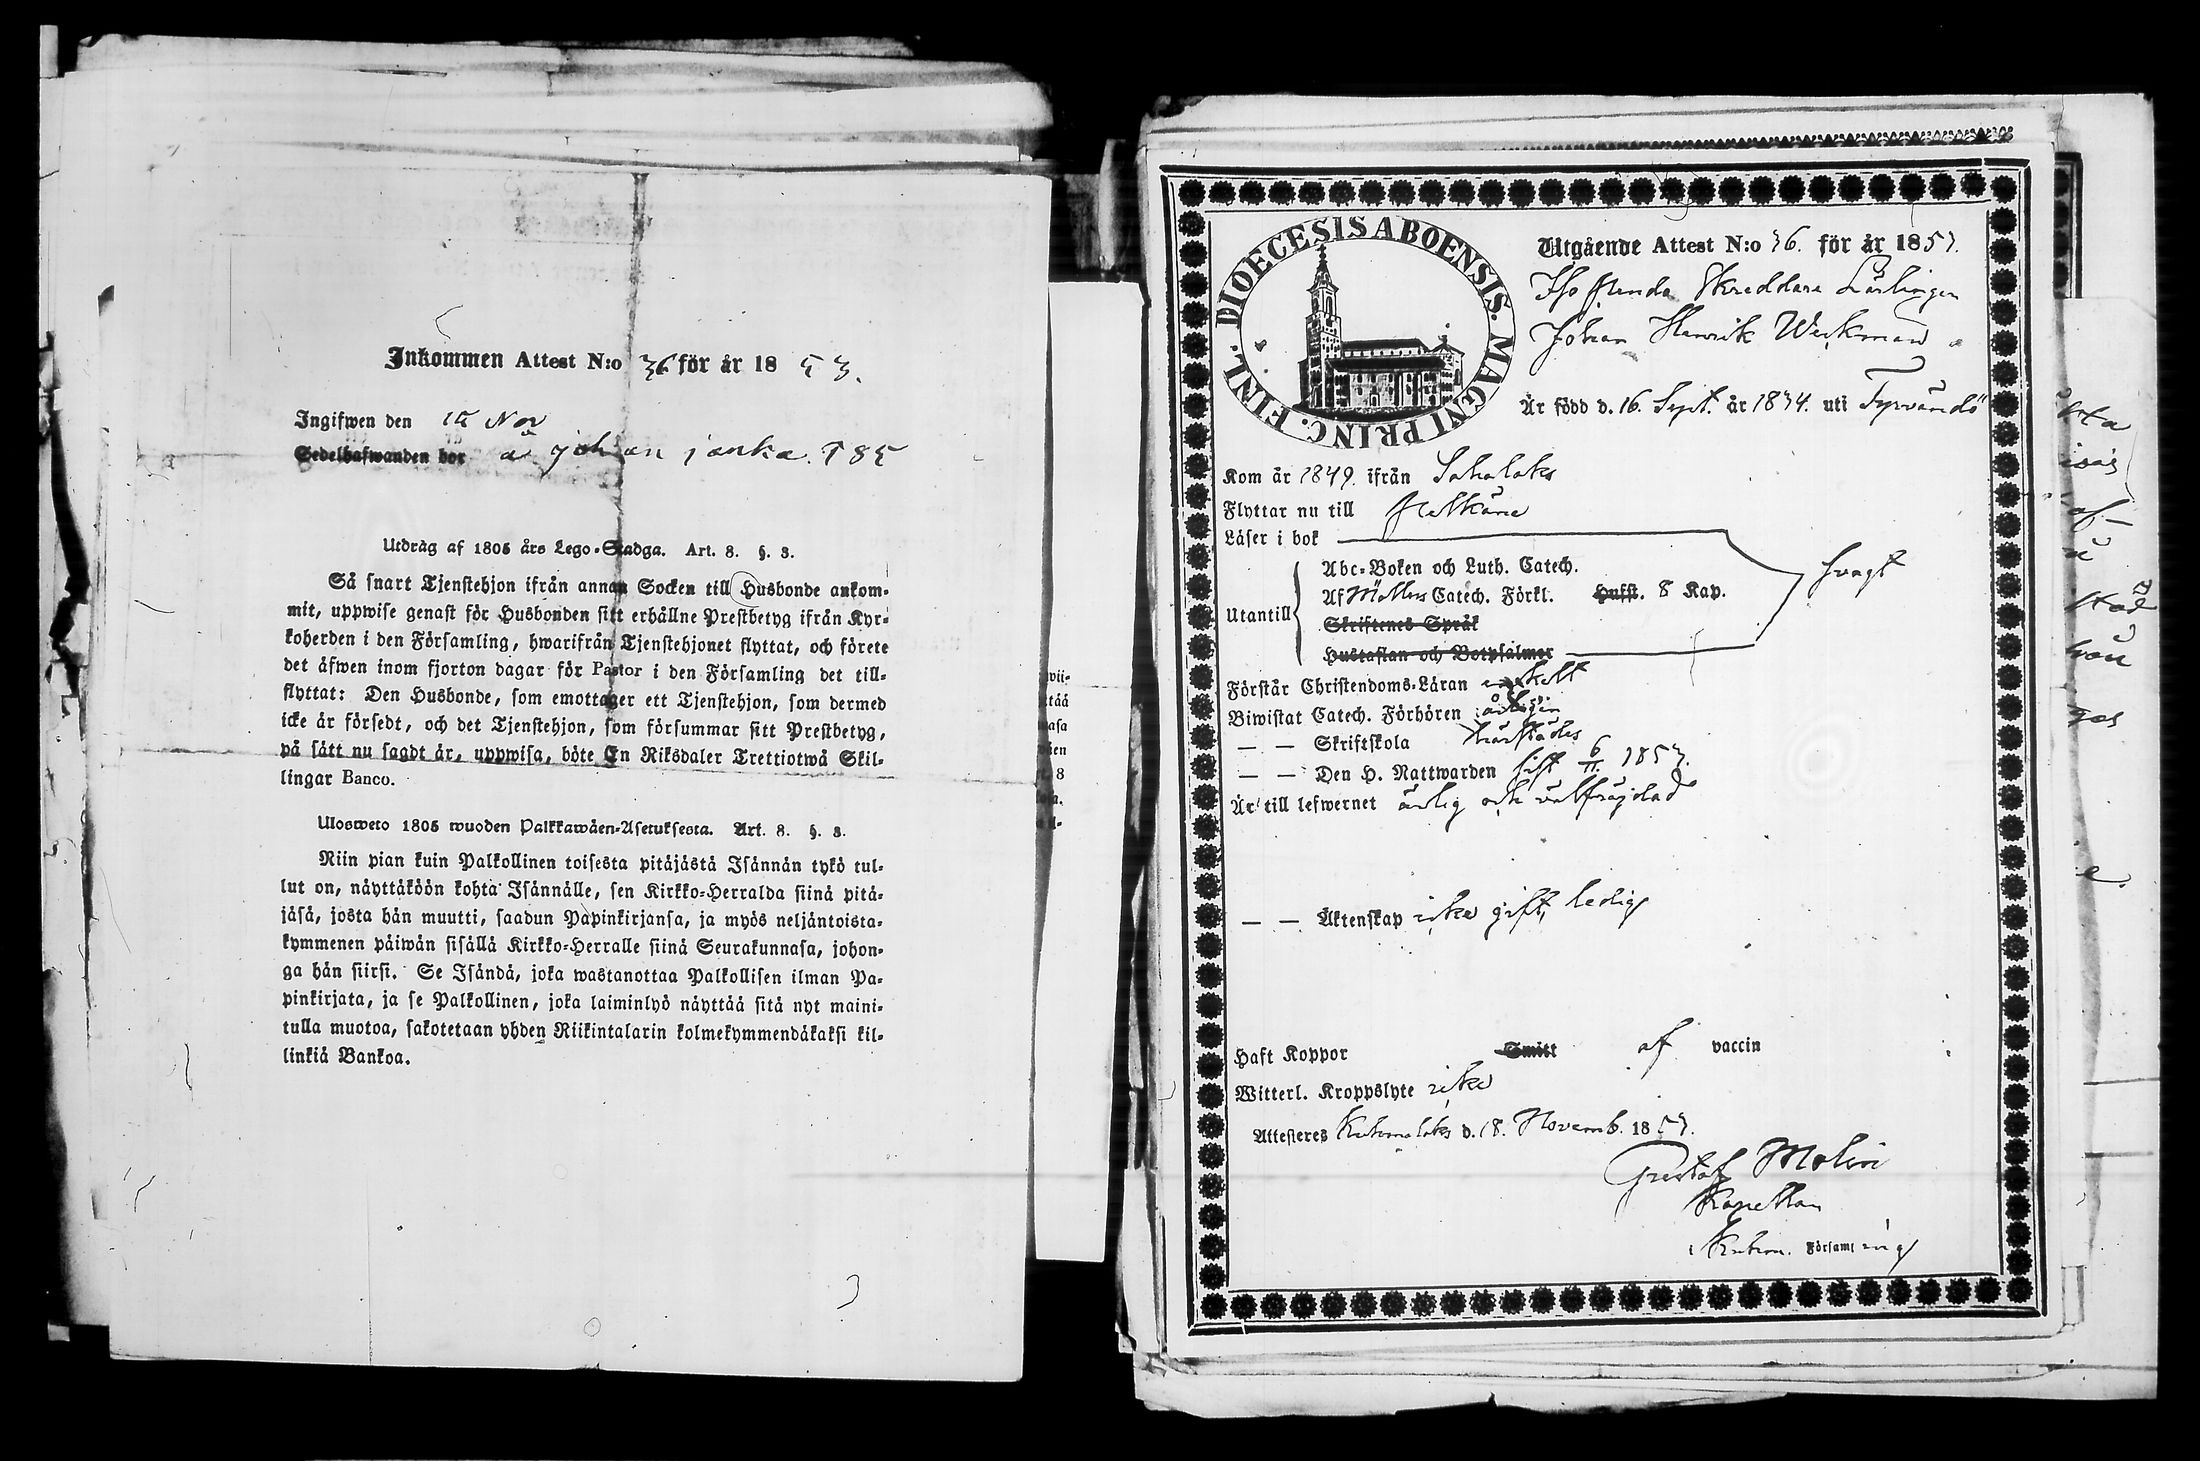 Inkommen Attest N:o 36 för år 1853.
Ingifwen den 15 Nov
Sedelhafwanden bor å johan janka. 785
Utdrag af 1805 års Lego-Stadga. Art. 8. §. 3.
Så snart Tjenstehjon ifrån annan Socken till Husbonde ankom-
mit, uppwise genast för Husbonden sitt erhållne Prestbetyg ifrån Kyr-
koherden i den Församling, hwarifrån Tjenstehjonet flyttat, och förete
det äfwen inom fjorton dagar för Pastor i den Församling det till-
flyttat: Den Husbonde, som emottager ett Tjenstehjon, som dermed
icke är försedt, och det Tjenstehjon, som försummar sitt Prestbetyg,
på sätt nu sagdt är, uppwisa, böte En Riksdaler Trettiotwå Skil-
lingar Banco.
Ulosweto 1805 wuoden Palkkawäen-Asetuksesta. Art. 8. §. 3.
Niin pian kuin Palkollinen toisesta pitäjästä Isännän tykö tul-
lut on, näyttäköön kohta Isännälle, sen Kirkko-Herralda siinä pitä-
jäsä, josta hän muutti, saadun Papinkirjansa, ja myös neljäntoista-
kymmenen päiwän sisällä Kirkko-Herralle siinä Seurakunnasa, johon-
ga hän siirsi. Se Isändä, joka wastanottaa Palkollisen ilman Pa-
pinkirjata, ja se Palkollinen, joka laiminlyö näyttää sitä nyt maini-
tulla muotoa, sakotetaan yhden Riikintalarin kolmekymmendäkaksi kil-
linkiä Bankoa.
DIOECESIS ABOENSIS. MAGNI PRINC. FINL.
Utgående Attest N:o 36. för år 1853.
Skreddare Lärlingen
Johan Henrik Werkman
Är född d. 16. Sept. år 1834. uti Tyrvändö
Kom år 1849. ifrån Sahalaks
Flyttar nu till Pelkäne
Läser i bok
Abc-Boken och Luth. Catech.
Af Möllers Catech. Förkl. Hufst. 8 Kap.
Utantill
Skriftenes Språk
Hustaflan och Botpsalmer
svagt
Förstår Christendoms-Läran enskelt
Biwistat Catech. Förhören årligen
— — Skriftskola härstädes
— — Den H. Nattwarden sist 6/11. 1853.
Är till lefwernet ärlig och välfräjdad
— — Äktenskap icke gift, ledig
Haft Koppor Smitt af vaccin
Witterl. Kroppslyte icke
Attesteres Kuhmalaks d. 18. Novemb. 1853.
Gustaf Molin
Kapellan
i Kuhm. Församling